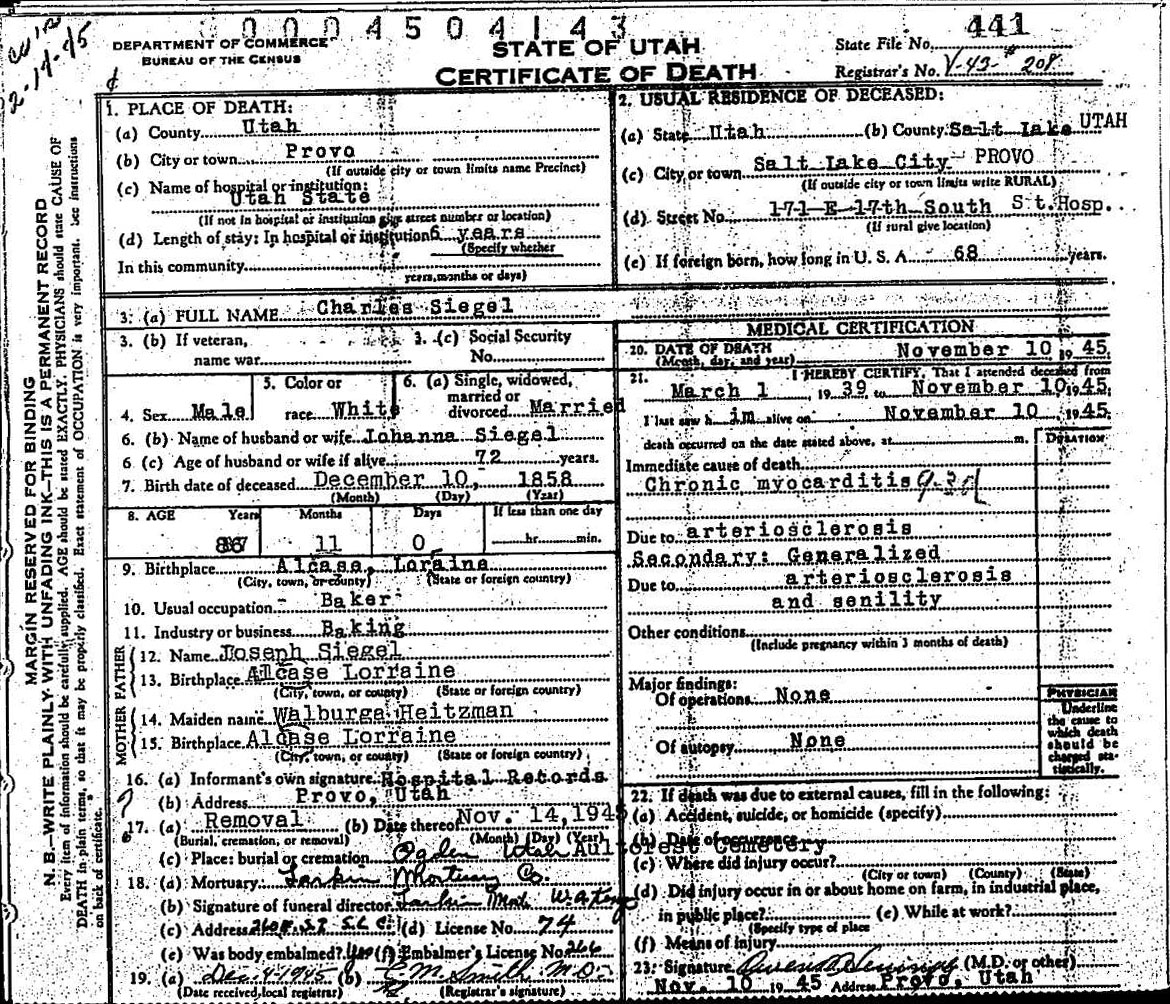 0 0 0 4 5 0 4 1 4 3
2-14-45
DEPARTMENT OF COMMERCE
BUREAU OF THE CENSUS
STATE OF UTAH
CERTIFICATE OF DEATH
State File No. 441
Registrar's No. V-43-# 208
MARGIN RESERVED FOR BINDING
N. B.—WRITE PLAINLY WITH UNFADING INK—THIS IS A PERMANENT RECORD
Every item of information should be carefully supplied. AGE should be stated EXACTLY. PHYSICIANS should state CAUSE OF
DEATH in plain terms, so that it may be properly classified. Exact statement of OCCUPATION is very important. See instructions
on back of certificate.
1. PLACE OF DEATH:
(a) County Utah
(b) City or town Provo
(If outside city or town limits name Precinct)
(c) Name of hospital or institution:
Utah State
(If not in hospital or institution give street number or location)
(d) Length of stay: In hospital or institution 6 years
(Specify whether
In this community
years, months or days)
2. USUAL RESIDENCE OF DECEASED:
(a) State Utah (b) County Salt Lake UTAH
(c) City or town Salt Lake City PROVO
(If outside city or town limits write RURAL)
(d) Street No. 171 E 17th South St. Hosp.
(If rural give location)
(e) If foreign born, how long in U. S. A. 68 years.
3. (a) FULL NAME Charles Siegel
3. (b) If veteran, name war
3. (c) Social Security No.
4. Sex Male
5. Color or race White
6. (a) Single, widowed, married or divorced Married
6. (b) Name of husband or wife Johanna Siegel
6 (c) Age of husband or wife if alive 72 years.
7. Birth date of deceased December 10, 1858
(Month) (Day) (Year)
8. AGE Years Months Days If less than one day
11 0 hr. min.
9. Birthplace Alcase, Loraine
(City, town, or county) (State or foreign country)
10. Usual occupation Baker
11. Industry or business Baking
FATHER
12. Name Joseph Siegel
13. Birthplace Alcase Lorraine
(City, town, or county) (State or foreign country)
MOTHER
14. Maiden name Walburga Heitzman
15. Birthplace Alcase Lorraine
(City, town, or county) (State or foreign country)
16. (a) Informant's own signature Hospital Records
(b) Address Provo, Utah
17. (a) Removal (b) Date thereof Nov. 14, 1945
(Burial, cremation, or removal) (Month) (Day) (Year)
(c) Place: burial or cremation Ogden Utah Aultorest Cemetery
18. (a) Mortuary Larkin Mortuary Co.
(b) Signature of funeral director Larkin Mort
(c) Address 260 E. S.T. S L C. (d) License No. 74
(e) Was body embalmed? Yes (f) Embalmer's License No. 266
19. (a) Dec 4-1945 (b) E M Smith M.D.
(Date received local registrar) (Registrar's signature)
MEDICAL CERTIFICATION
20. DATE OF DEATH November 10 1945
(Month, day, and year)
21. I HEREBY CERTIFY, That I attended deceased from
March 1 1939 to November 10 1945
I last saw h im alive on November 10 1945
death occurred on the date stated above, at m.
DURATION
Immediate cause of death
Chronic myocarditis
Due to arteriosclerosis
Secondary: Generalized
Due to arteriosclerosis
and senility
Other conditions
(Include pregnancy within 3 months of death)
Major findings:
Of operations None
Of autopsy None
PHYSICIAN
Underline
the cause to
which death
should be
charged sta-
tistically.
22. If death was due to external causes, fill in the following:
(a) Accident, suicide, or homicide (specify)
(b) Date of occurrence
(c) Where did injury occur?
(City or town) (County) (State)
(d) Did injury occur in or about home on farm, in industrial place,
in public place? (e) While at work?
(Specify type of place
(f) Means of injury
23. Signature (M.D. or other)
Nov. 10 1945 Address Provo, Utah